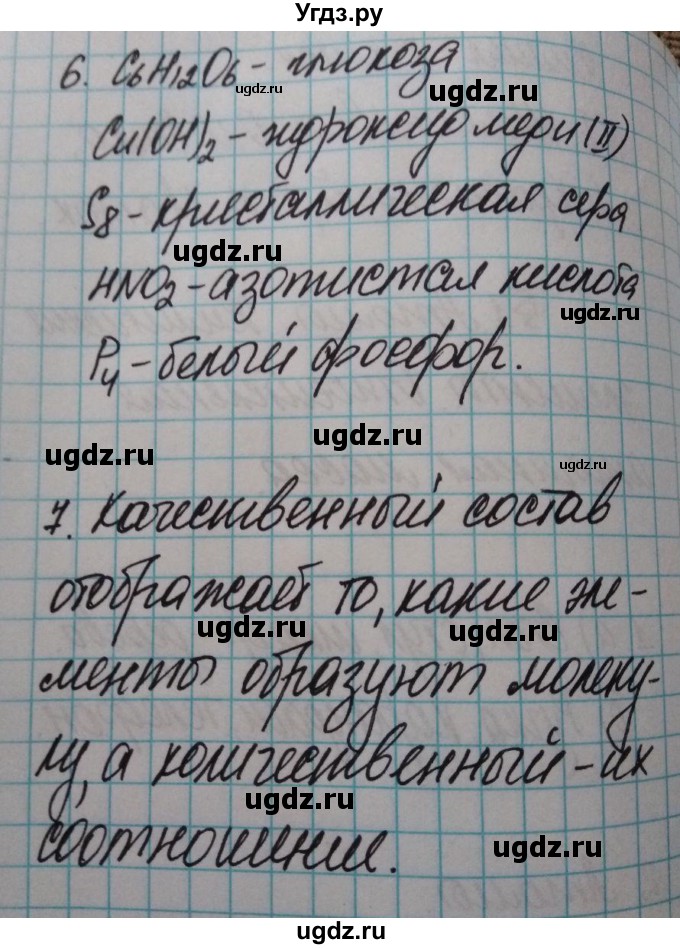 Угдз.ру
6. C6H12O6 - глюкоза
ugdz.ru ugdz.ru
Cu(OH)2 - гидроксид меди (II)
S8 - кристаллическая сера
ugdz.ru
HNO2 - азотистая кислота
ugdz.ru
P4 - белый фосфор.
ugdz.ru ugdz.ru
7. Качественный состав
отображает то, какие эле-
ugdz.ru ugdz.ru
менты образуют молеку-
лу, а количественный - их
ugdz.ru
соотношение.
ugdz.ru
ugdz.ru